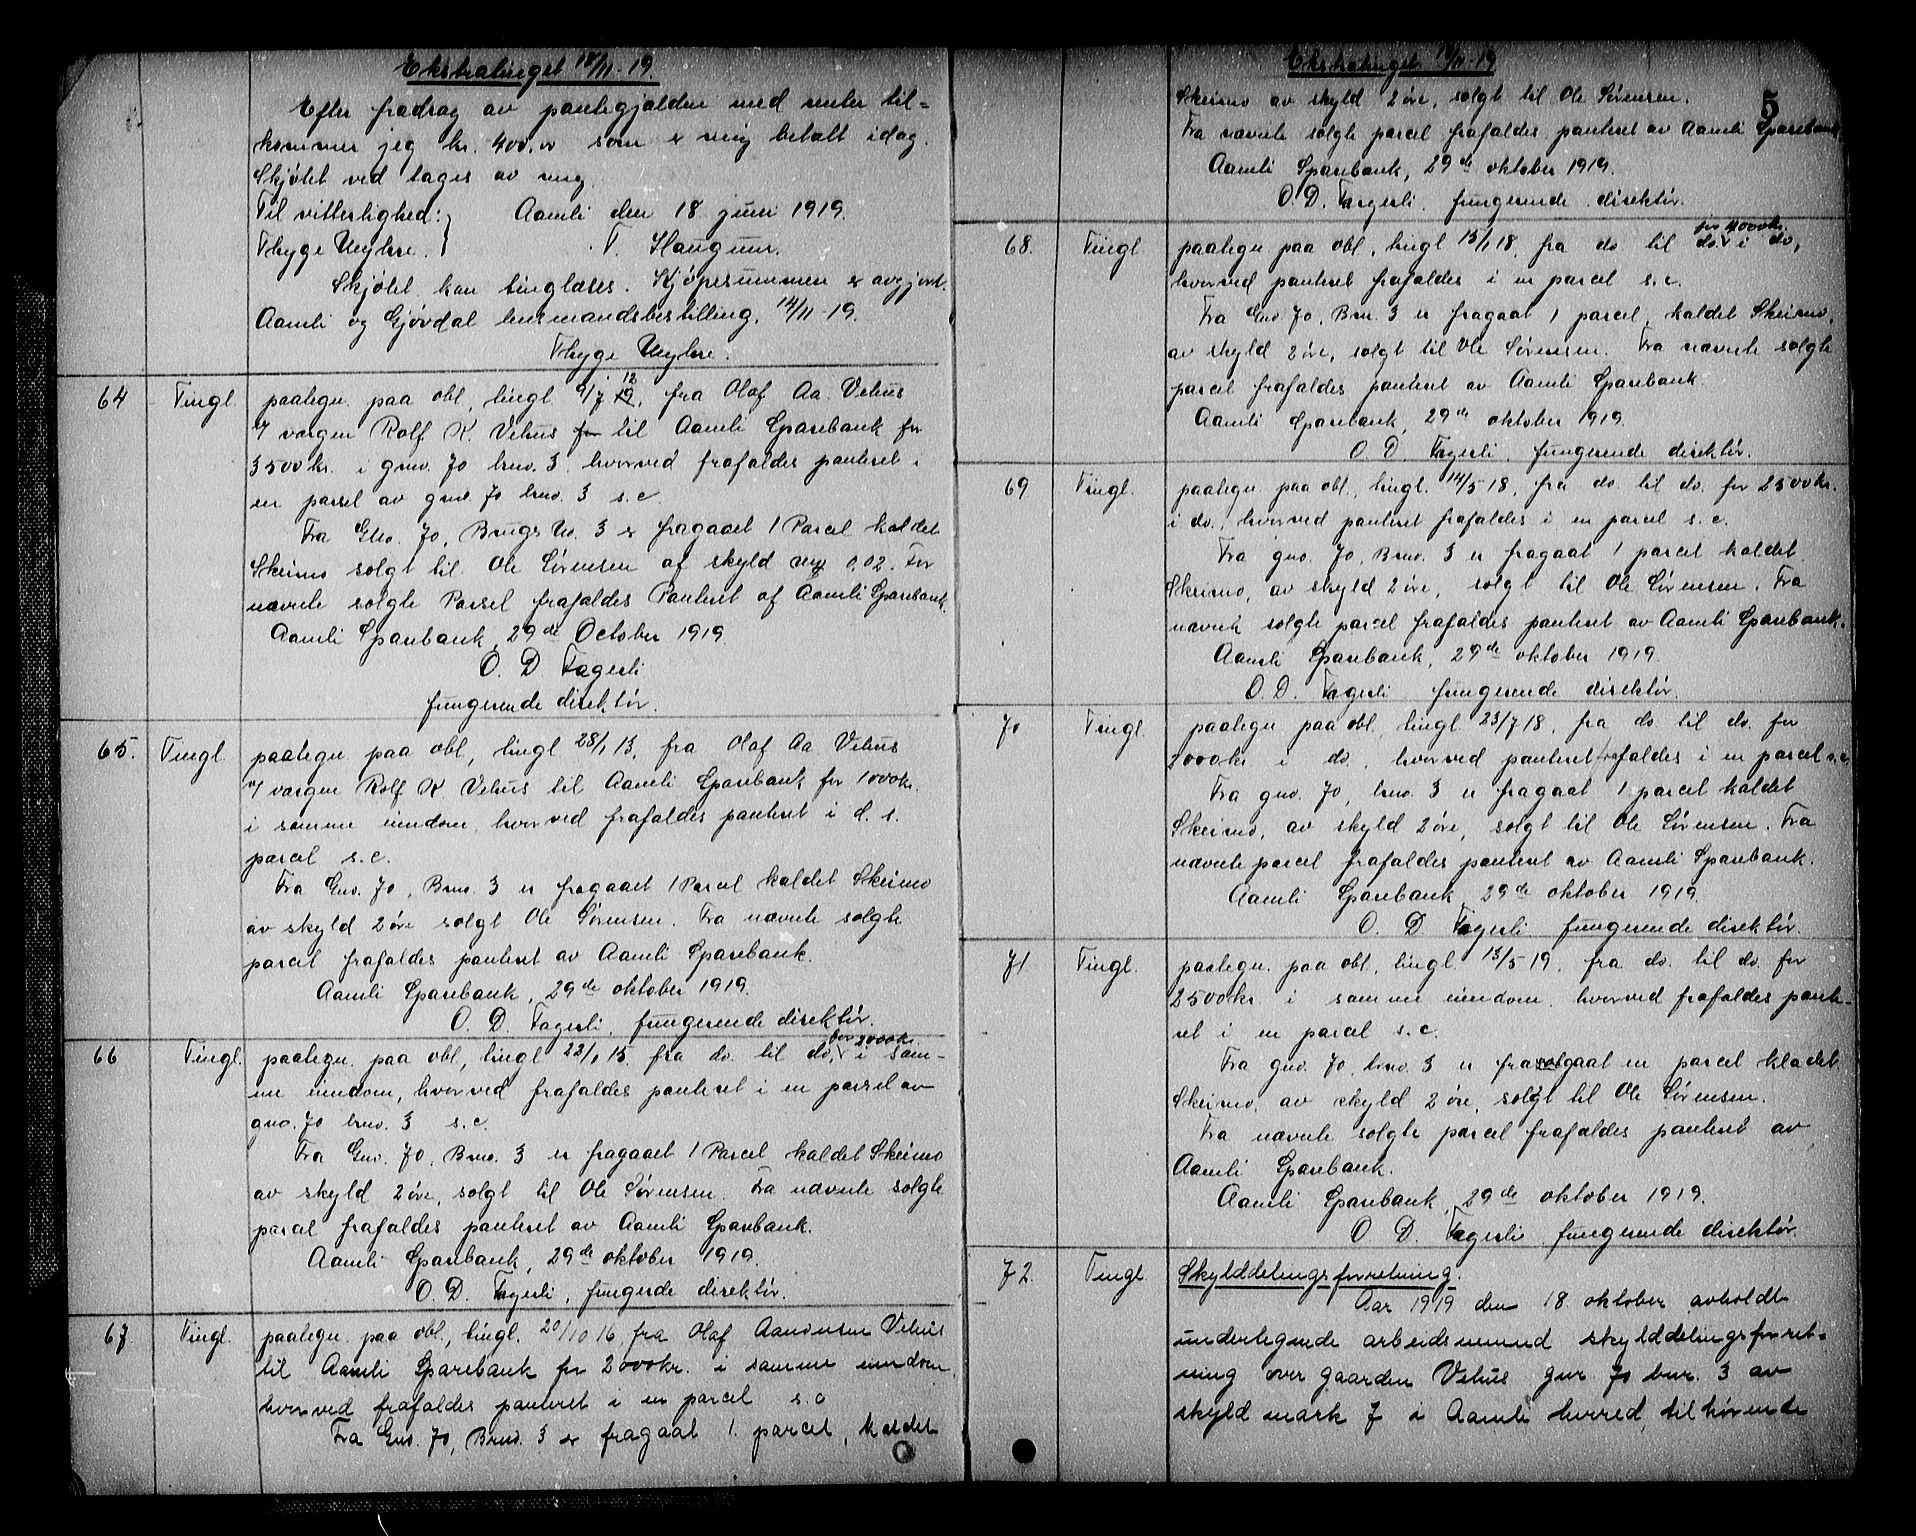 Ekstratinget 18/11-19.
Efter fradrag av pantegjælden med renter til-
kommer jeg kr. 400,00 som er mig betalt idag.
Skjøtet ved tages av mig.
Til vitterlighed: } Aamli den 18 juni 1919.
Thyge Uehre. } T. Haugum.
Skjøtet kan tinglæses. Kjøpesummen er avgjort.
Aamli og Gjøvdal lensmandsbestilling, 14/11-19.
Thyge
64 Tingl. paategn. paa obl, tingl 9/7 12 19, fra Olaf Aa. Vehus
v/ værgen Rolf K. Vehus for til Aamli Sparebank for
3500 kr. i gno. 70 bno. 3. hvorved frafaldes panteret i
en parsel av gno. 70 bno. 3 s.c
Fra Gno. 70, Brugs No. 3 er fragaaet 1 Parcel kaldet
Skeimo solgt til Ole Sørensen af skyld my 0,02. For
nævnte solgte Parsel frafaldes Panteret af Aamli Sparebank.
Aamli Sparebank, 29de October 1919.
O. D Fagerli
fungerende direktør.
65. Tingl. paategn paa obl, tingl 28/1 13, fra Olaf Aa Vehus
v/ værgen Rolf K Vehus til Aamli Sparebank for 1000kr.
i samme eiendom, hvorved frafaldes panteret i d. s.
parcel s.c.
Fra Gno. 70, Bno. 3 er fragaaet 1 Parcel kaldet Skeimo
av skyld 2 øre solgt Ole Sørensen. Fra nævnte solgte
parcel frafaldes panteret av Aamli Sparebank.
Aamli Sparebank, 29de oktober 1919.
O. D. Fagerli, fungerende direktør.
66 Tingl. paategn. paa obl, tingl 22/1 15. fra do. til do, for 2000kr. i sam-
me eiendom, hvorved frafaldes panteret i en parsel av
gno. 70 bno. 3 s.c.
Fra Gno. 70, Bno. 3 er fragaaet 1 Parcel kaldet Skeimo
av skyld 2 øre, solgt til Ole Sørensen. Fra nævnte solgte
parcel frafaldes panteret av Aamli Sparebank.
Aamli Sparebank, 29de oktober 1919.
O. D. Fagerli, fungerde direktør.
67. Tingl. paategn. paa obl., tingl. 20/10 16. fra Olaf Aanonsen Vehus
til Aamli Sparebank for 2000kr. i samme eiendom
hvorved frafaldes panteret i en parcel s.c
Fra Gno. 70, Bno. 3 er fragaat 1. parcel, kaldet
Ekstratinget 18/11-19
5
Skeimo av skyld 2 øre, solgt til Ole Sørensen.
Fra nævnte solgte parcel frafaldes panteret av Aamli Sparebank
Aamli Sparebank, 29de oktober 1919.
O. D. Fagerli. fungerende direktør.
68. Tingl paategn paa obl, tingl 15/1 18, fra do til do. for 4000kr. i do,
hvorved panteret frafaldes i en parcel s.c.
Fra Gno 70, Bno. 3 er fragaat 1 parcel, kaldet Skeimo,
av skyld 2 øre, solgt til Ole Sørensen. Fra nævnte solgte
parcel frafaldes panteret av Aamli Sparebank.
Aamli Sparebank, 29de oktober 1919.
O. D Fagerli, fungerende direktør.
69 Tingl. paategn. paa obl., tingl. 14/5 18, fra do. til do. for 2500kr.
i do., hvorved panteret frafaldes i en parcel s.c.
Fra gno. 70, Bno. 3 er fragaat 1 parcel kaldet
Skeimo, av skyld 2 øre, solgt til Ole Sørensen. Fra
nævnte solgte parcel frafaldes panteret av Aamli Sparebank.
Aamli Sparebank, 29de oktober 1919.
O. D. Fagerli fungerende direktør.
70 Tingl. paategn paa obl, tingl 23/7 18, fra do til do. for
2000kr i do., hvorved panteret frafaldes i en parcel s.c.
Fra gno. 70, bno. 3 er fragaat 1 parcel kaldet
Skeimo, av skyld 2 øre, solgt til Ole Sørensen. Fra
nævnte parcel frafaldes panteret av Aamli Sparebank.
Aamli Sparebank 29de oktober 1919.
O. D Fagerli fungerende direktør.
71 Tingl. paategn. paa obl, tingl. 13/5 19, fra do. til do. for
2500kr. i samme eiendom, hvorved frafaldes pante-
ret i en parcel s.c.
Fra gno. 70, bno. 3 er frasolgaat en parcel kladet
Skeimo, av skyld 2 øre, solgt til Ole Sørensen.
Fra nævnte solgte parcel frafaldes panteret av
Aamli Sparebank.
Aamli Sparebank, 29de oktober 1919.
O D. Fagerli fungerende direktør.
72. Tingl. Skylddelingsforretning.
Aar 1919 den 18. oktober avholdt
undertegnede arbeidsnemnd skylddelingsforret-
ning over gaarden Vehus gnr. 70 bnr. 3 av
skyld mark 7 i Aamli herred, tilhørende